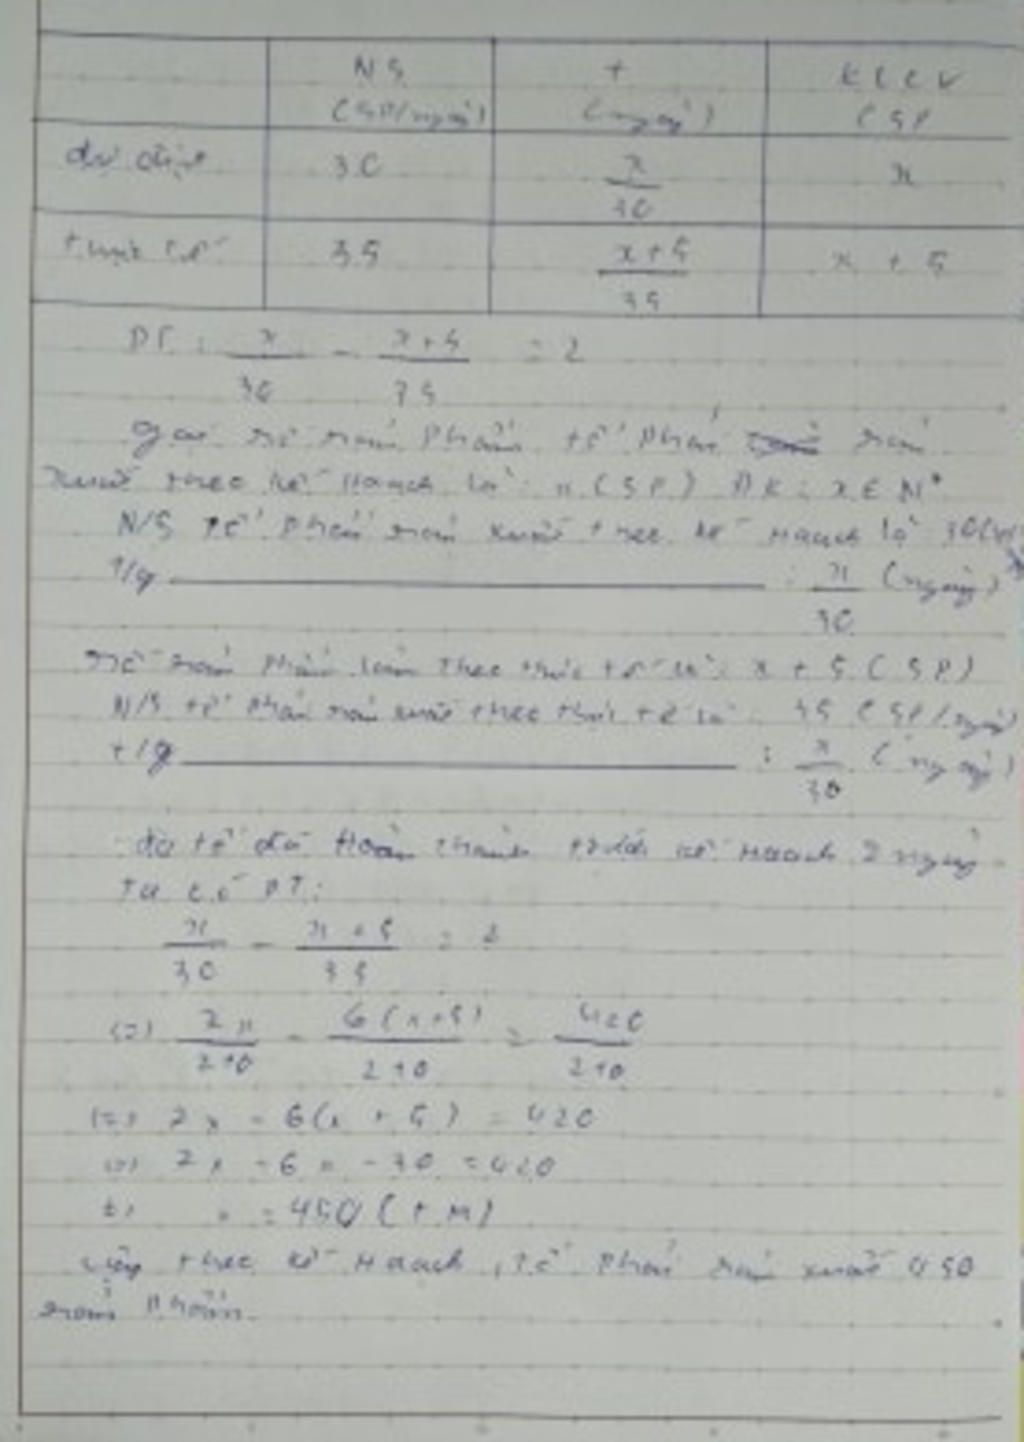 NS t KLCV
(SP/ngày) (ngày) (SP
dự định 30 x/30 x
thực tế 35 x+5/35 x + 5
PT : x/30 - x+5/35 = 2
gọi số sản phẩm tổ phải sản
xuất theo kế hoạch là : x (SP) ĐK : x ∈ N*
N/S tổ phải sản xuất theo kế hoạch là 30
T/g : x/30 (ngày)
Số sản phẩm làm theo thực tế là : x + 5 (SP)
N/S tổ phải sản xuất theo thực tế là : 35 (SP/ngày)
t/g : x/30 (ngày)
do tổ đã hoàn thành trước kế hoạch 2 ngày
Ta có PT :
x/30 - x + 5/35 = 2
(=) 7x/210 - 6(x+5)/210 = 420/210
(=) 7x - 6(x + 5) = 420
(=) 7x - 6x - 30 = 420
(=) x = 450 (t M)
vậy theo kế hoạch, tổ phải sản xuất 450
sản phẩm.